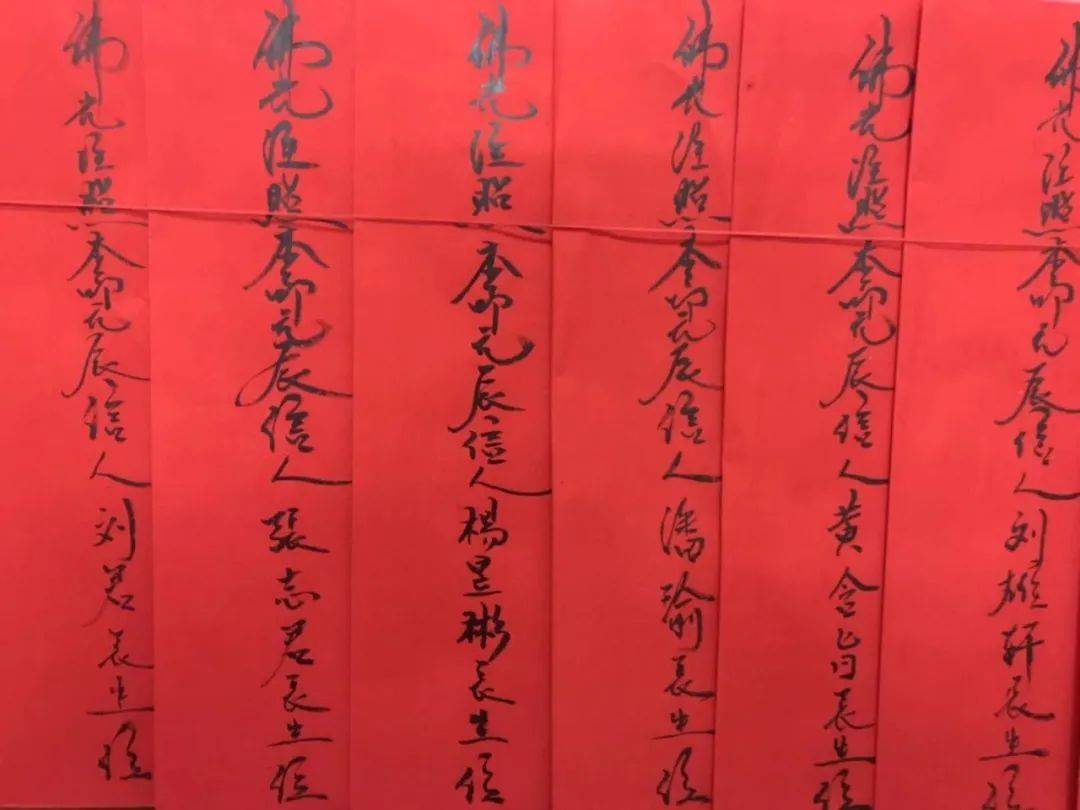 佛光注照本命元辰信人刘轩长生位
佛光注照本命元辰信人黄含旨长生位
佛光注照本命元辰信人潘瑜长生位
佛光注照本命元辰信人楊昱彬长生位
佛光注照本命元辰信人張志君长生位
佛光注照本命元辰信人刘君长生位